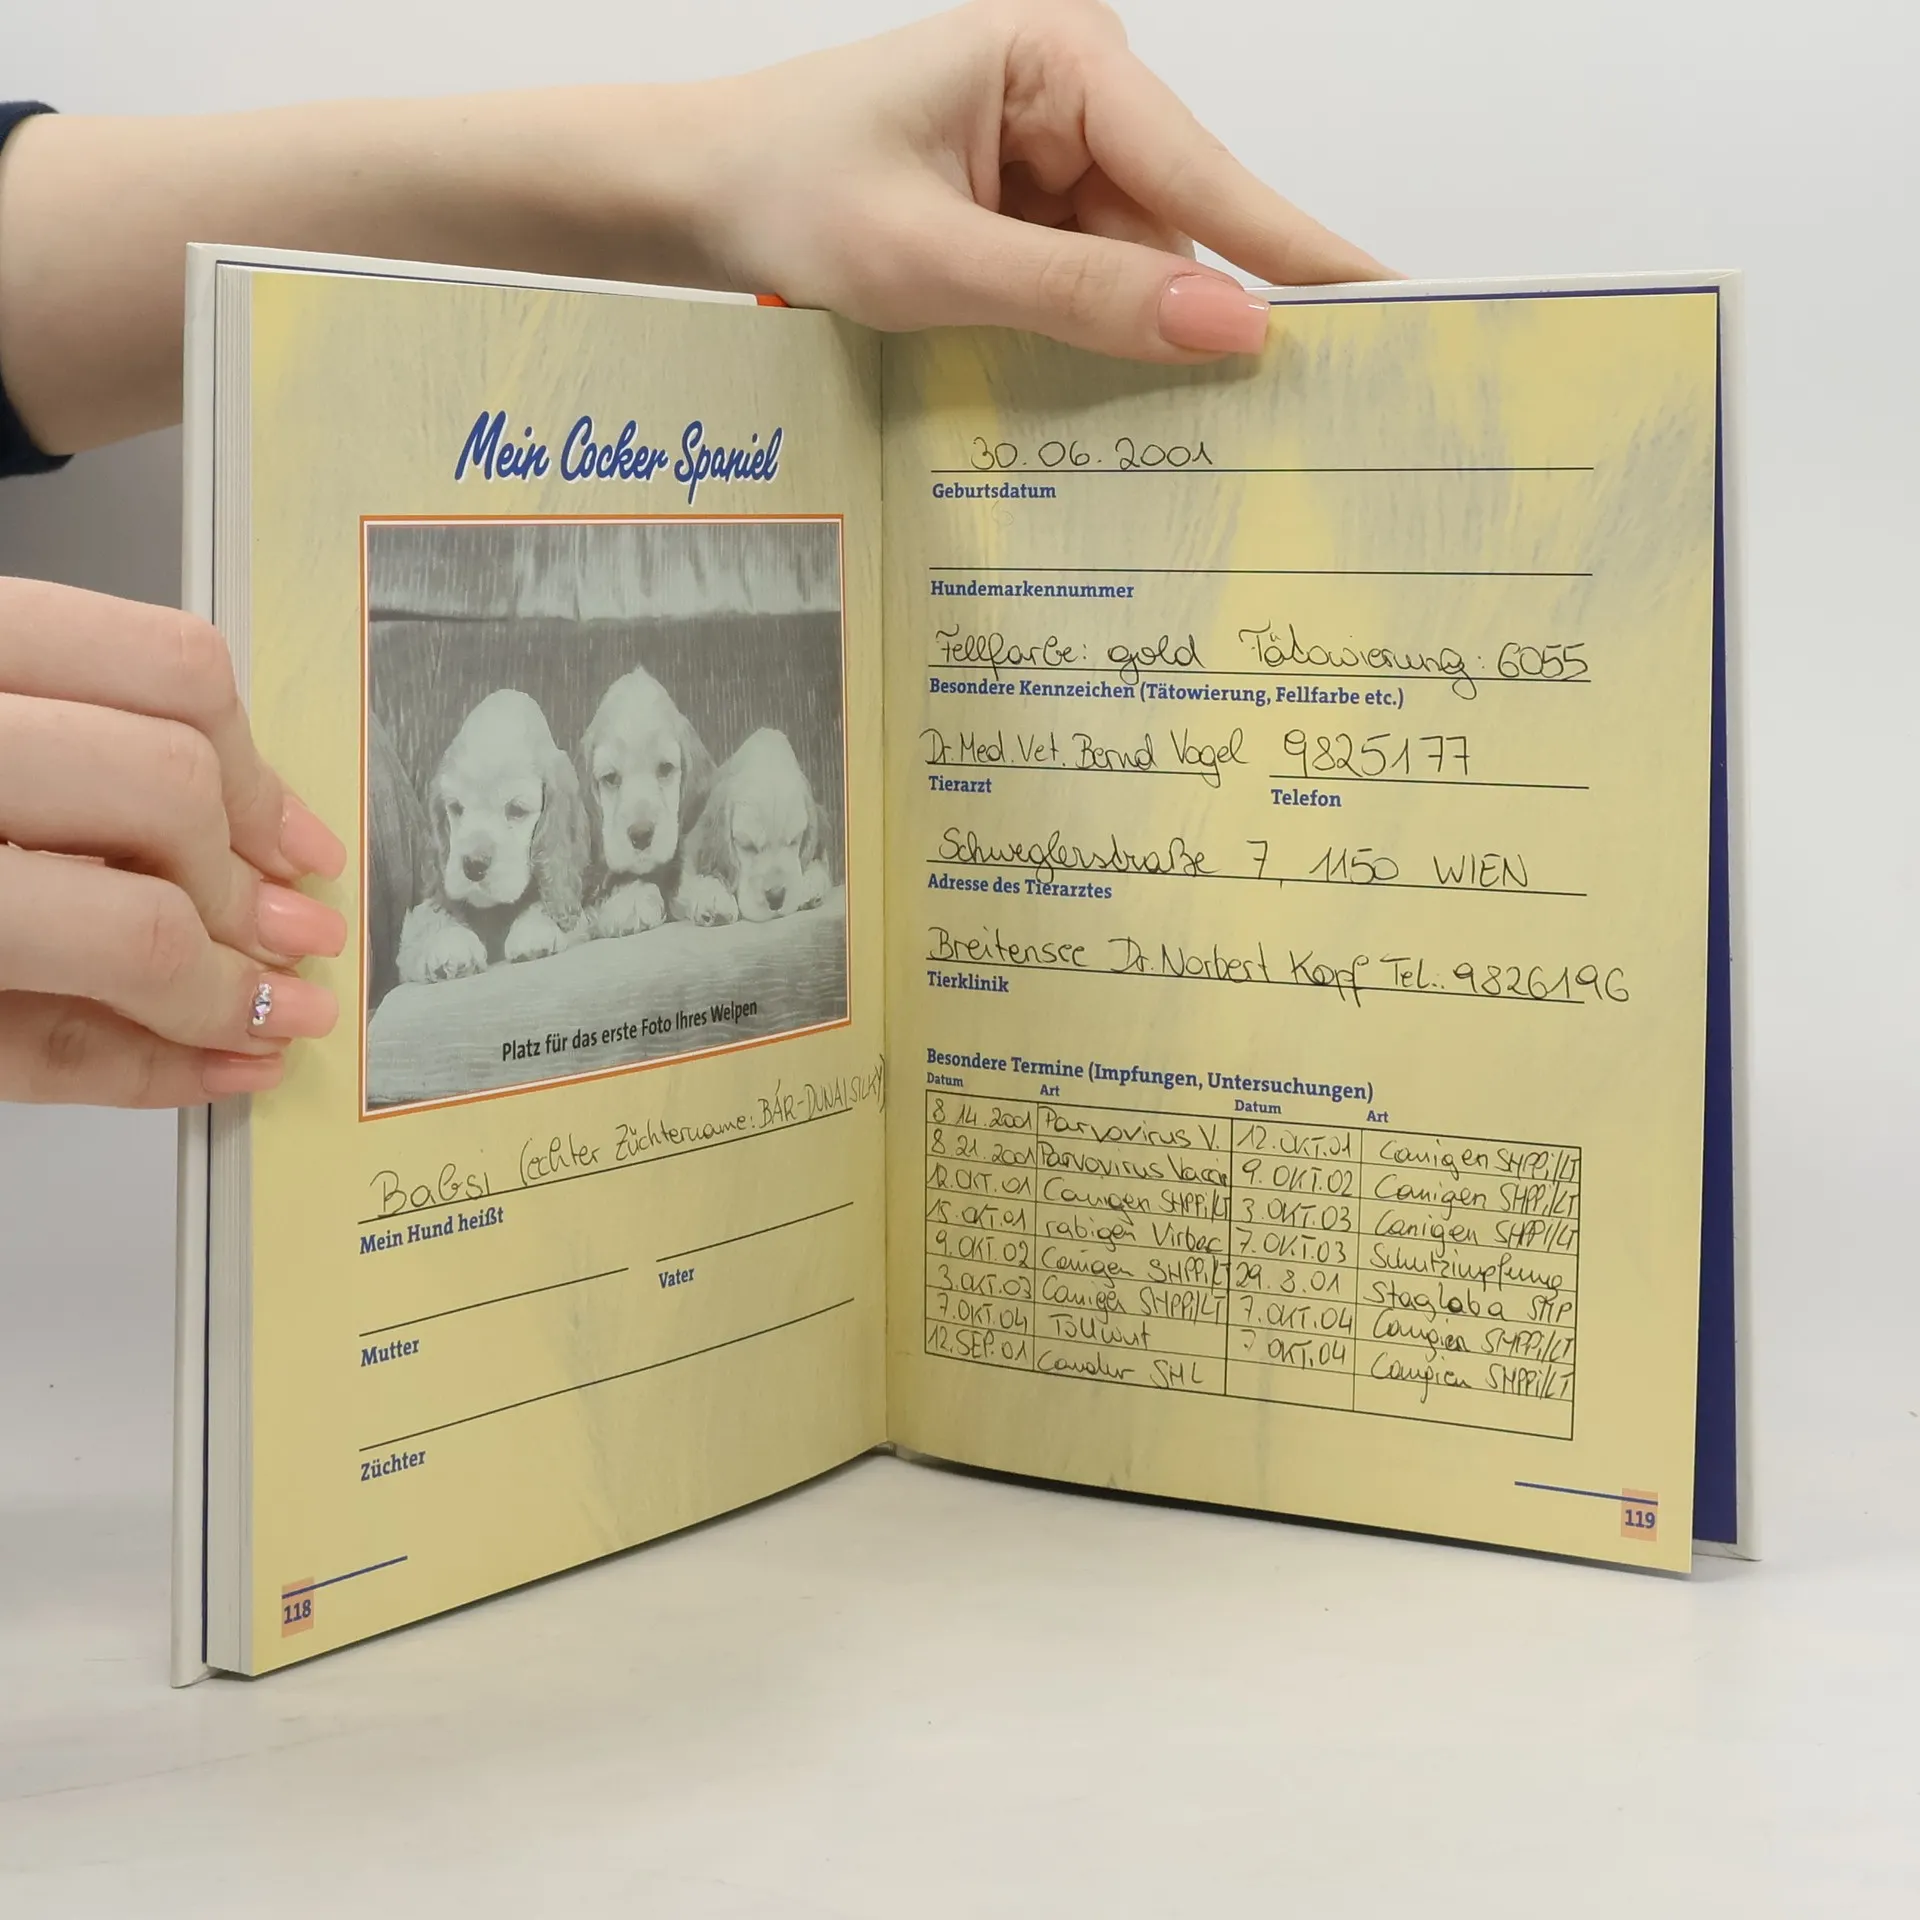 Mein Cocker Spaniel
Platz für das erste Foto Ihres Welpen
Babsi (echter Züchtername: BÁR-DUNAI SILKY)
Mein Hund heißt
Vater
Mutter
Züchter
118
30.06.2001
Geburtsdatum
Hundemarkennummer
Fellfarbe: gold Tätowierung: 6055
Besondere Kennzeichen (Tätowierung, Fellfarbe etc.)
Dr. Med. Vet. Bernd Vogel 9825177
Tierarzt Telefon
Schweglerstraße 7, 1150 WIEN
Adresse des Tierarztes
Breitensee Dr. Norbert Kopf Tel.: 9826196
Tierklinik
Besondere Termine (Impfungen, Untersuchungen)
Datum Art Datum Art
8 14. 2001 Parvovirus V. 12. OKT. 01 Canigen SHPPi/LT
8. 21. 2001 Parvovirus 9. OKT. 02 Canigen SHPPi/LT
12. OKT. 01 Canigen SHPPi/LT 3. OKT. 03 Canigen SHPPi/LT
15. OKT. 01 rabigen Virbac 7. OKT. 03 Schutzimpfung
9. OKT. 02 Canigen SHPPi/LT 29. 8. 01
3. OKT. 03 Canigen SHPPi/LT 7. OKT. 04 SHPPi/LT
7. OKT. 04 Tollwut 7 OKT. 04 SHPPi/LT
12. SEP. 01 SHL
119